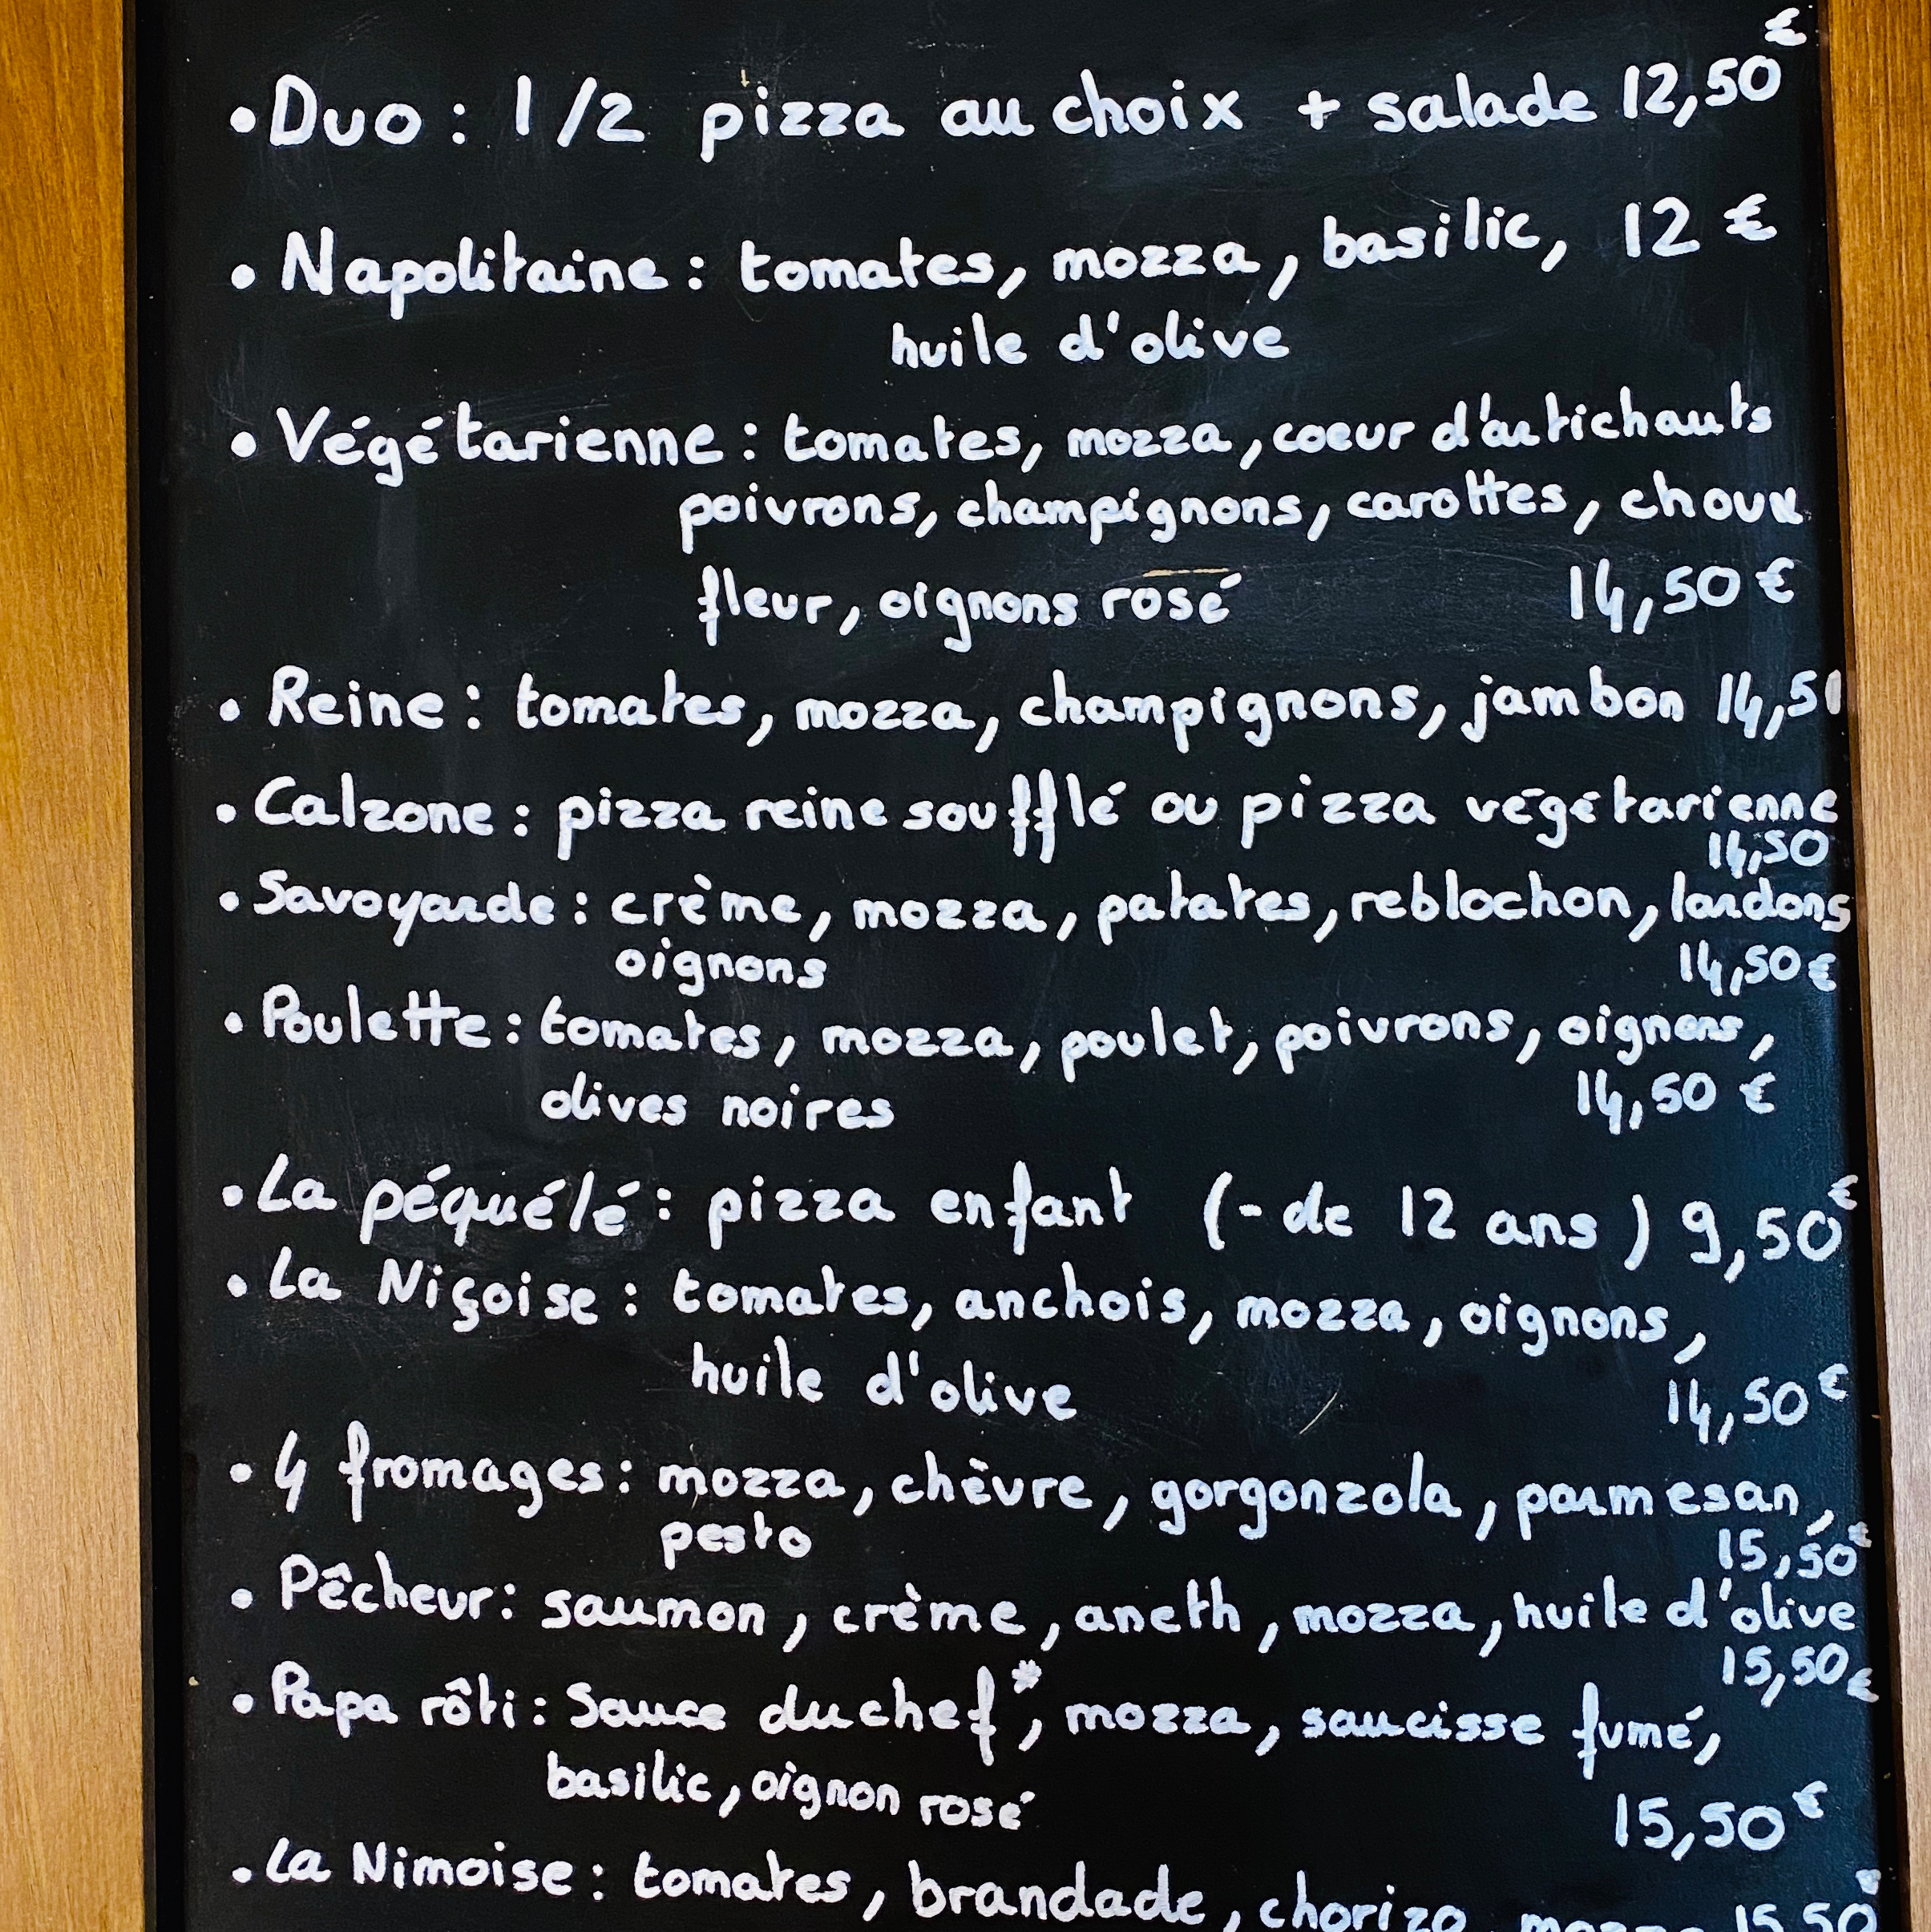 •Duo : 1/2 pizza au choix + salade 12,50€
• Napolitaine : tomates, mozza, basilic, 12 €
huile d'olive
• Végétarienne : tomates, mozza, coeur d'artichauts
poivrons, champignons, carottes, choux
fleur, oignons rosé 14,50 €
• Reine : tomates, mozza, champignons, jambon 14,5
• Calzone : pizza reine soufflé ou pizza végétarienne
14,50
• Savoyarde : crème, mozza, patates, reblochon, lardons
oignons 14,50€
• Poulette : tomates, mozza, poulet, poivrons, oignons,
olives noires 14,50 €
• La péquélé : pizza enfant (- de 12 ans) 9,50€
• La Niçoise : tomates, anchois, mozza, oignons,
huile d'olive 14,50€
• 4 fromages : mozza, chèvre, gorgonzola, parmesan,
pesto 15,50€
• Pêcheur : saumon, crème, aneth, mozza, huile d'olive
15,50€
• Papa rôti : Sauce du chef*, mozza, saucisse fumé,
basilic, oignon rosé 15,50€
• La Nimoise : tomates, brandade, chorizo, mozza 15,50€